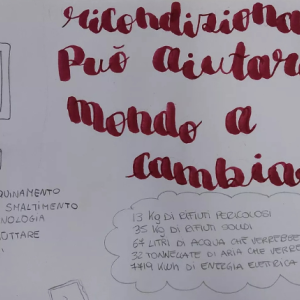 ricondiziona
Può aiutare
mondo a
cambia
QUINAMENTO
SMALTIMENTO
NOLOGIA
OTTARE
13 Kg DI RIFIUTI PERICOLOSI
35 KG DI RIFIUTI SOLIDI
67 LITRI DI ACQUA CHE VERREBBE
32 TONNELLATE DI ARIA CHE VERRE
7719 KWh DI ENERGIA ELETTRICA